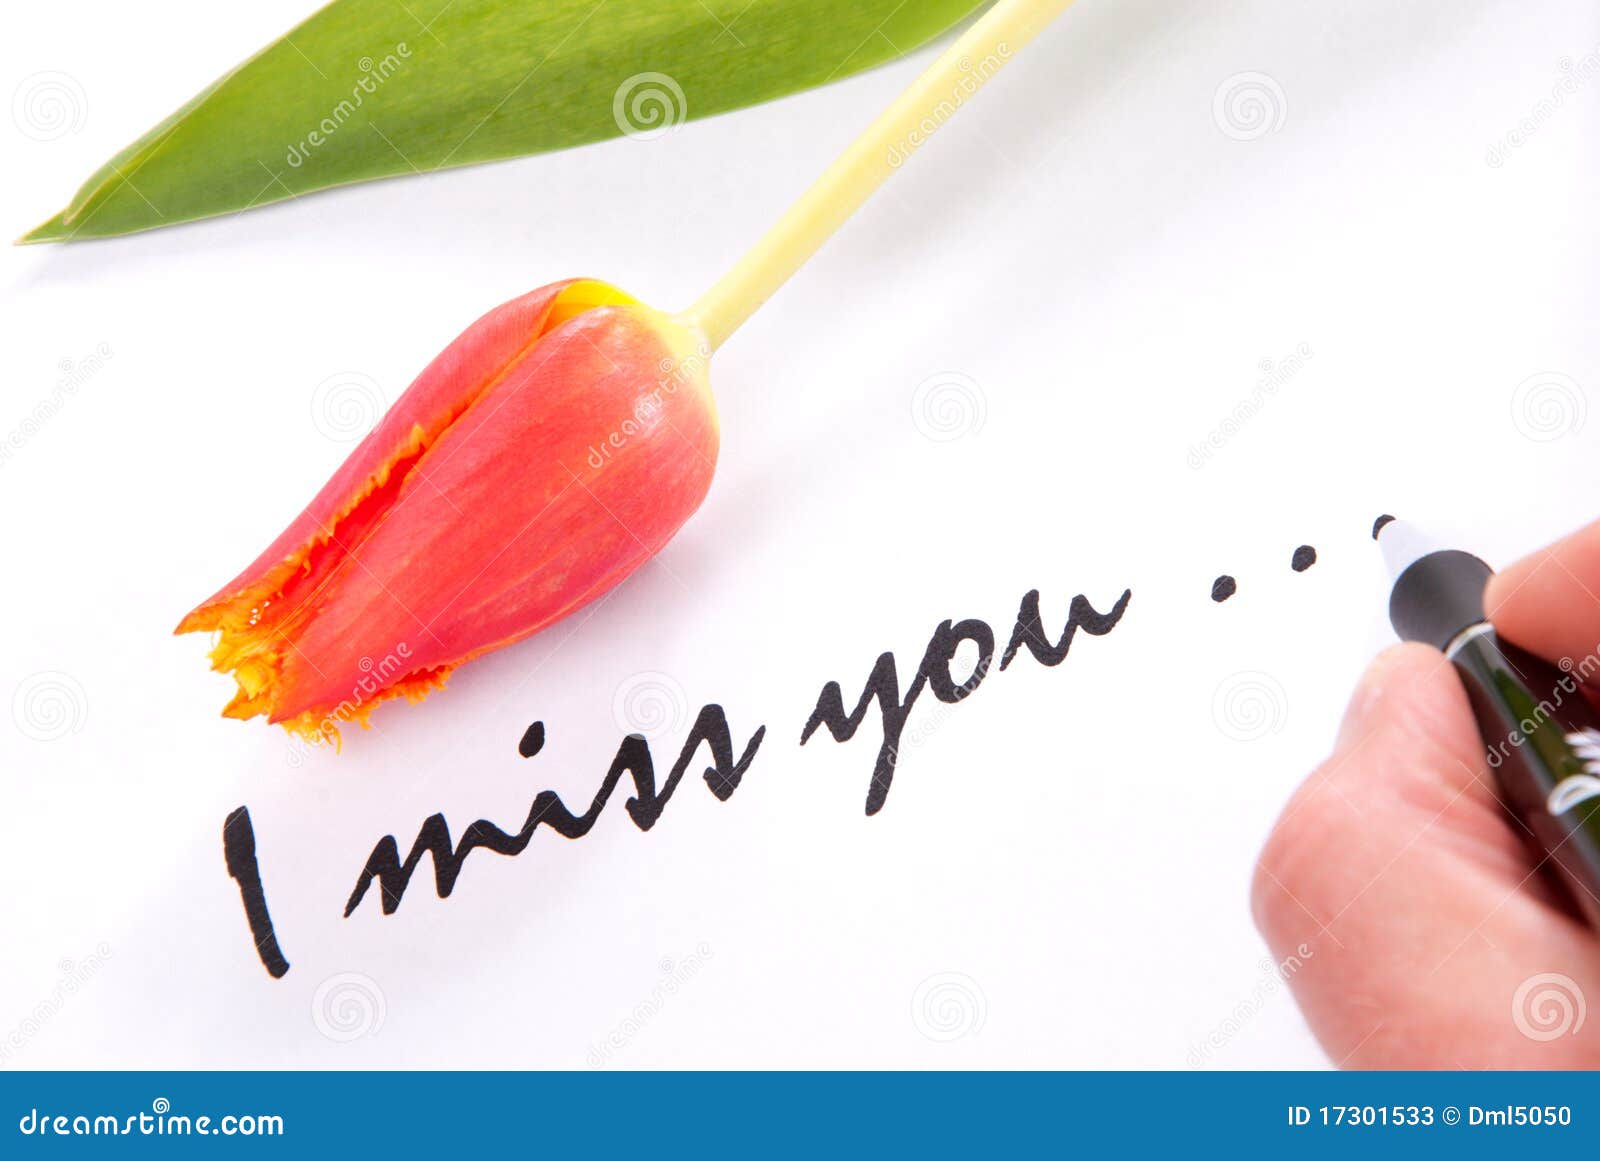 I miss you ...
dreamstime.com
ID 17301533 © Dml5050